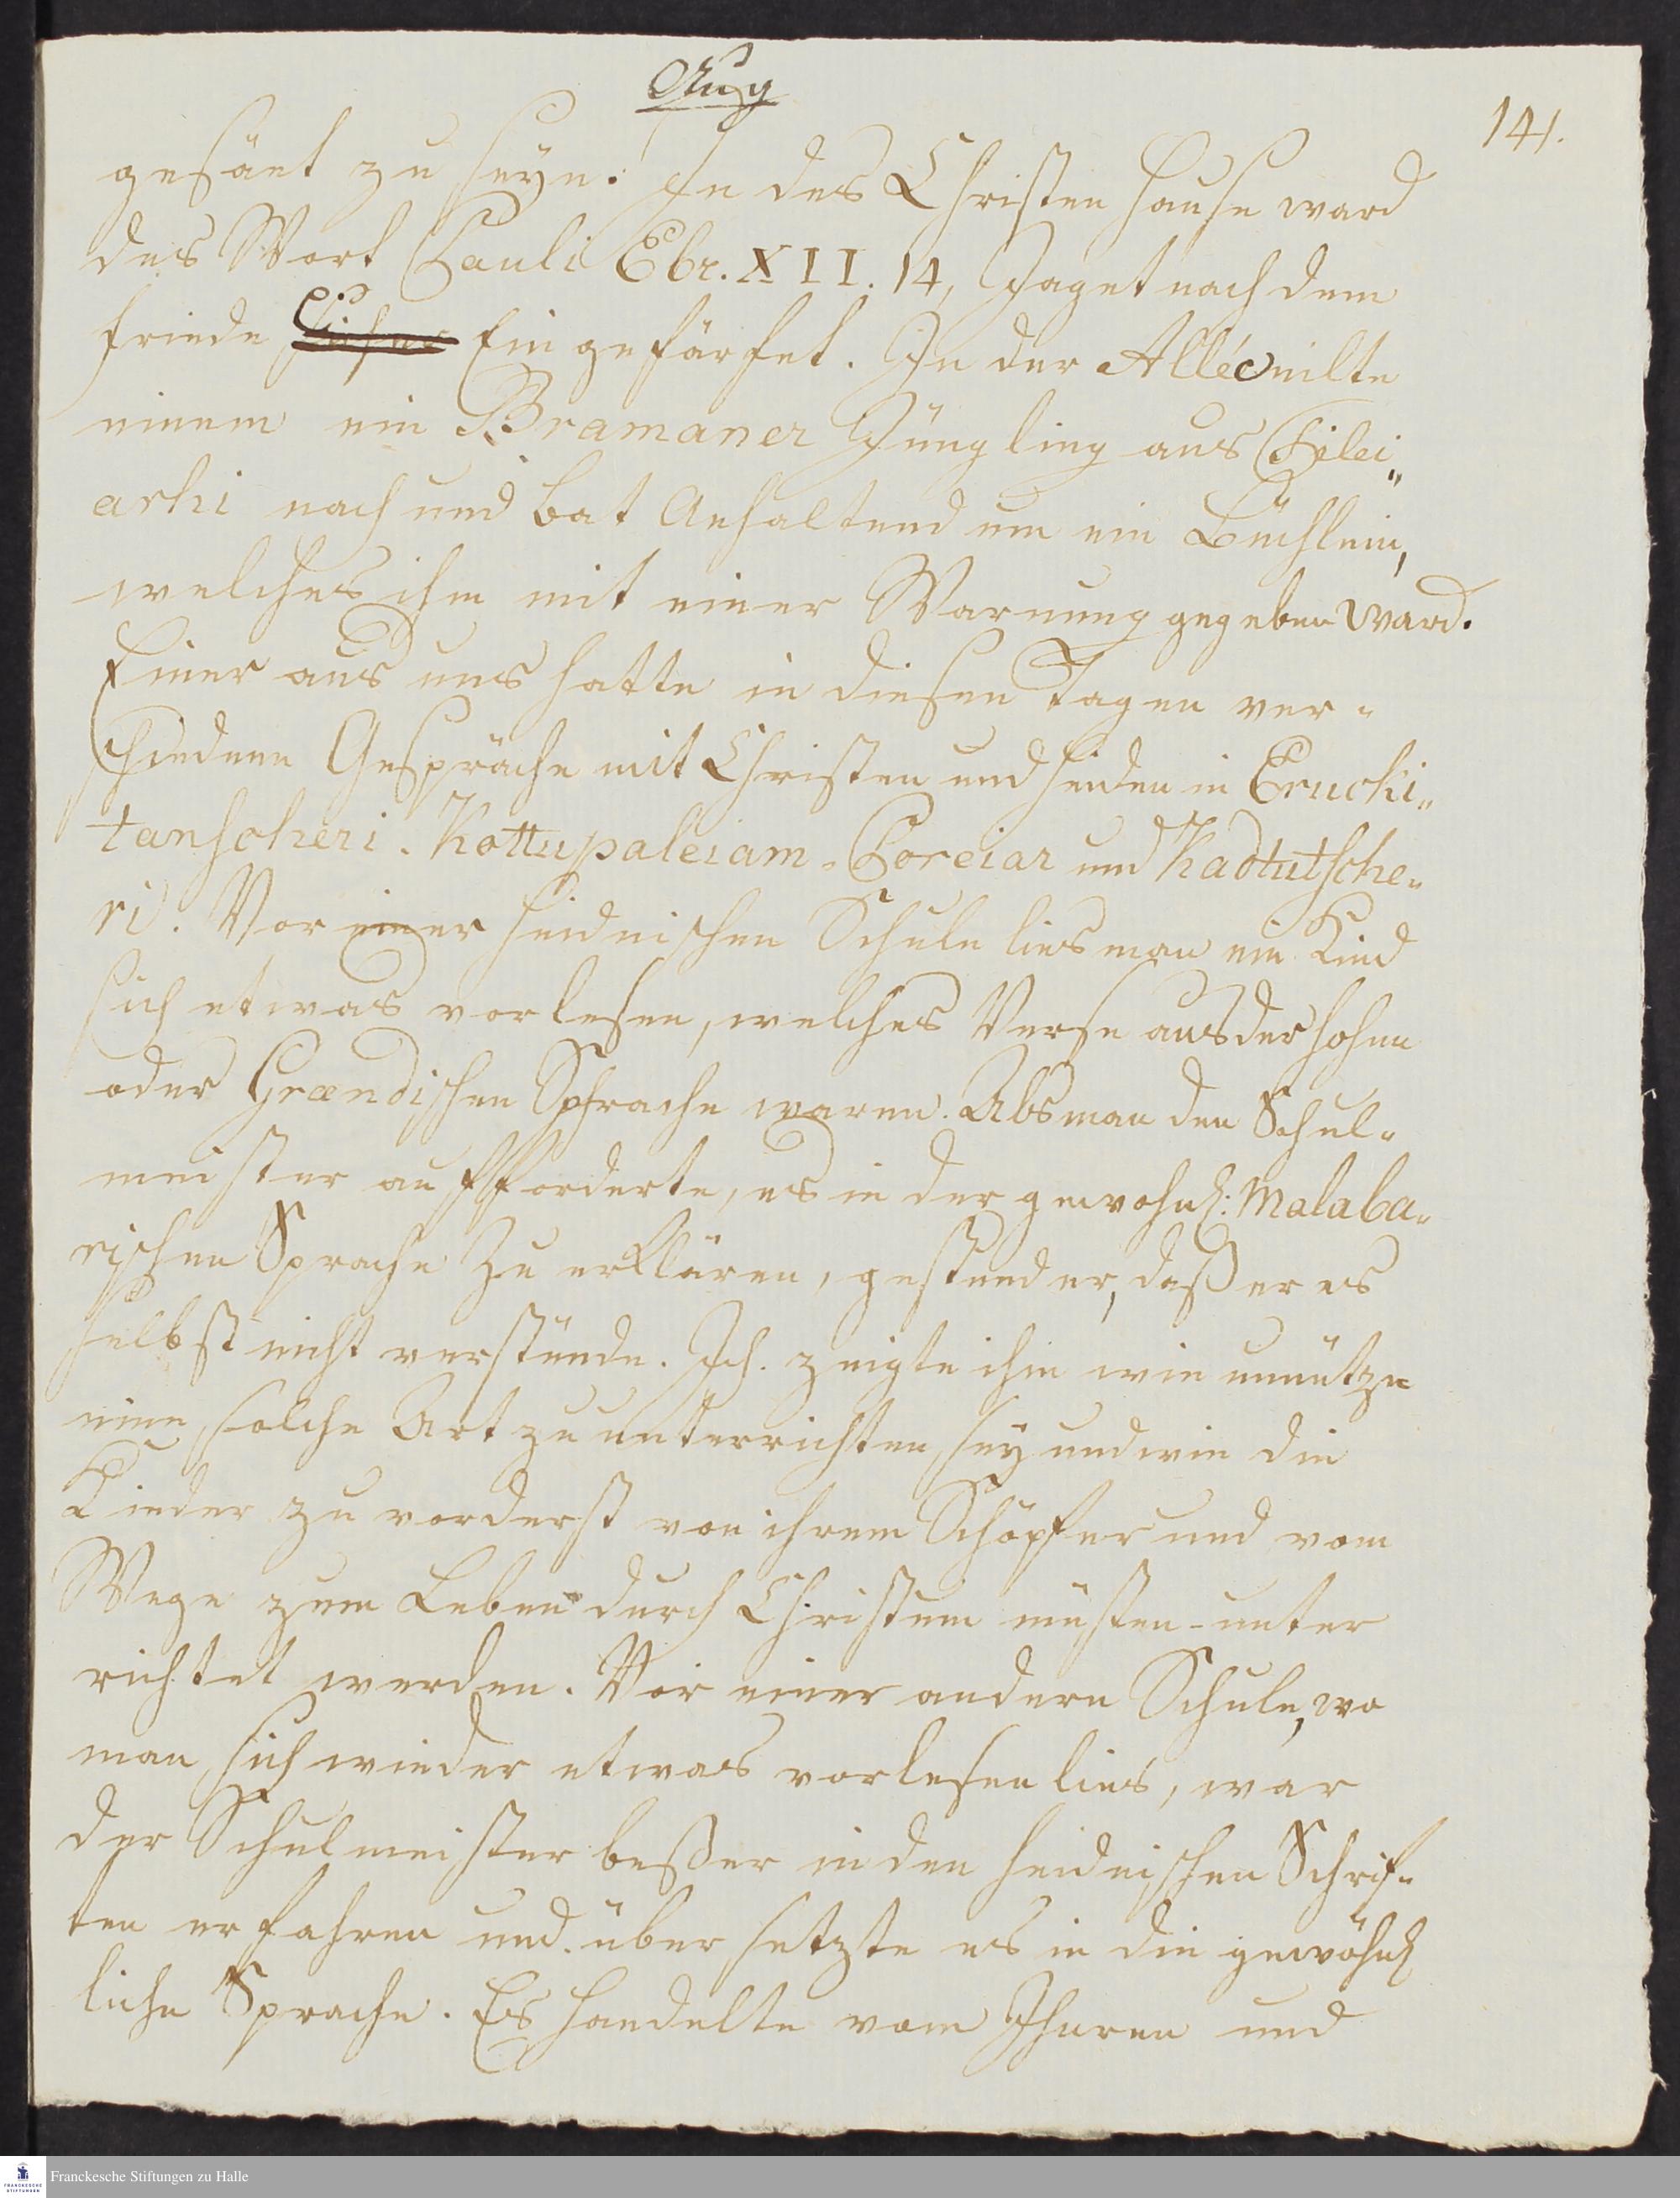 Aug
141.
gesäet zu seyn. In des Christen Hause ward
das Wort Pauli Ebr. XII. 14, Jaget nach dem
Friede eingeschärfet. In der Allée eilte
einem ein Bramaner Jüngling aus Pilei„
arhi nach und bat anhaltend um ein Büchlein,
welches ihm mit einer Warnung gegeben ward.
Einer aus uns hatte in diesen Tagen ver-
schiedene Gespräche mit Christen und Heiden in Erucki„
tanscheri. Kottupaleiam. Poreiar und Kadtutsche„
ri. Vor einer heidnischen Schule lies man ein Kind
sich etwas vorlesen, welches Verse aus der hohen
oder Grændischen Sprache waren. Als man den Schul-
meister aufforderte, es in der gewohnl: Malaba-
rischen Sprache zu erklären, gestund er, daß er es
selbst nicht verstünde. Ich zeigte ihm wie unnütze
eine solche Art zu unterrichten sey und wie die
Kinder zu vorderst von ihrem Schöpfer und vom
Wege zum Leben durch Christum müsten unter
richtet werden. Vor einer andern Schule, wo
man sich wieder etwas vorlesen lies, war
der Schulmeister beßer in den heidnischen Schrif-
ten erfahren und übersetzte es in die gewöhn
liche Sprache. Es handelte vom Ihuren und
Franckesche Stiftungen zu Halle
FRANCKESCHE STIFTUNGEN